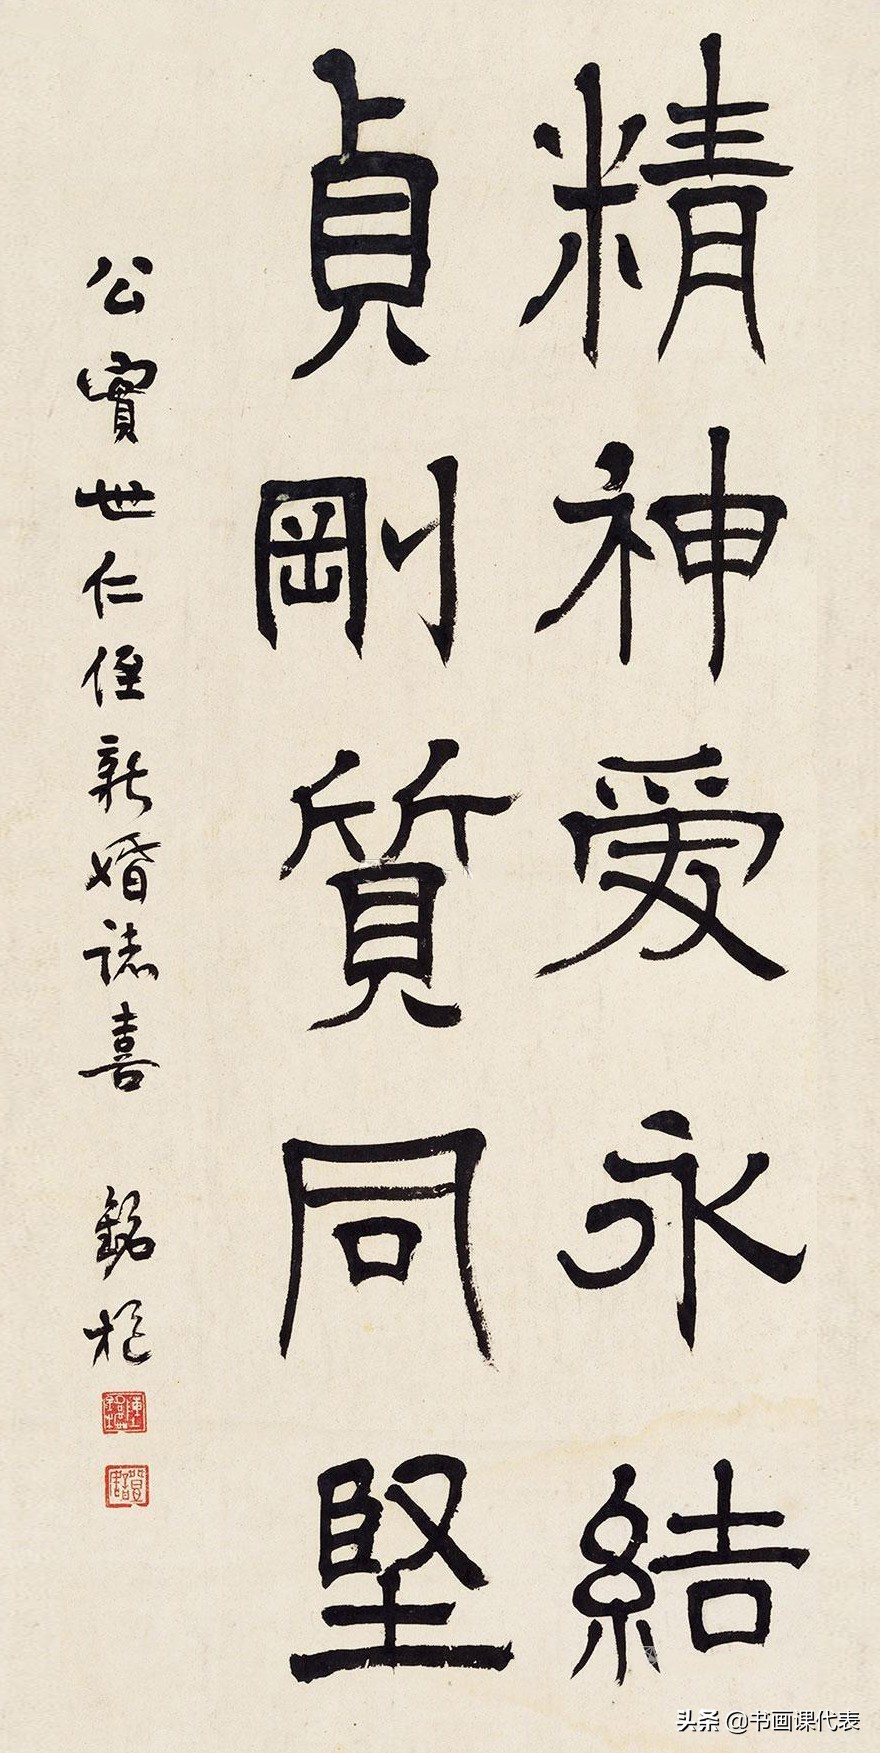 精神爱永結
貞剛質同堅
公實世仁侄新婚誌喜 銘樞
头条 @书画课代表